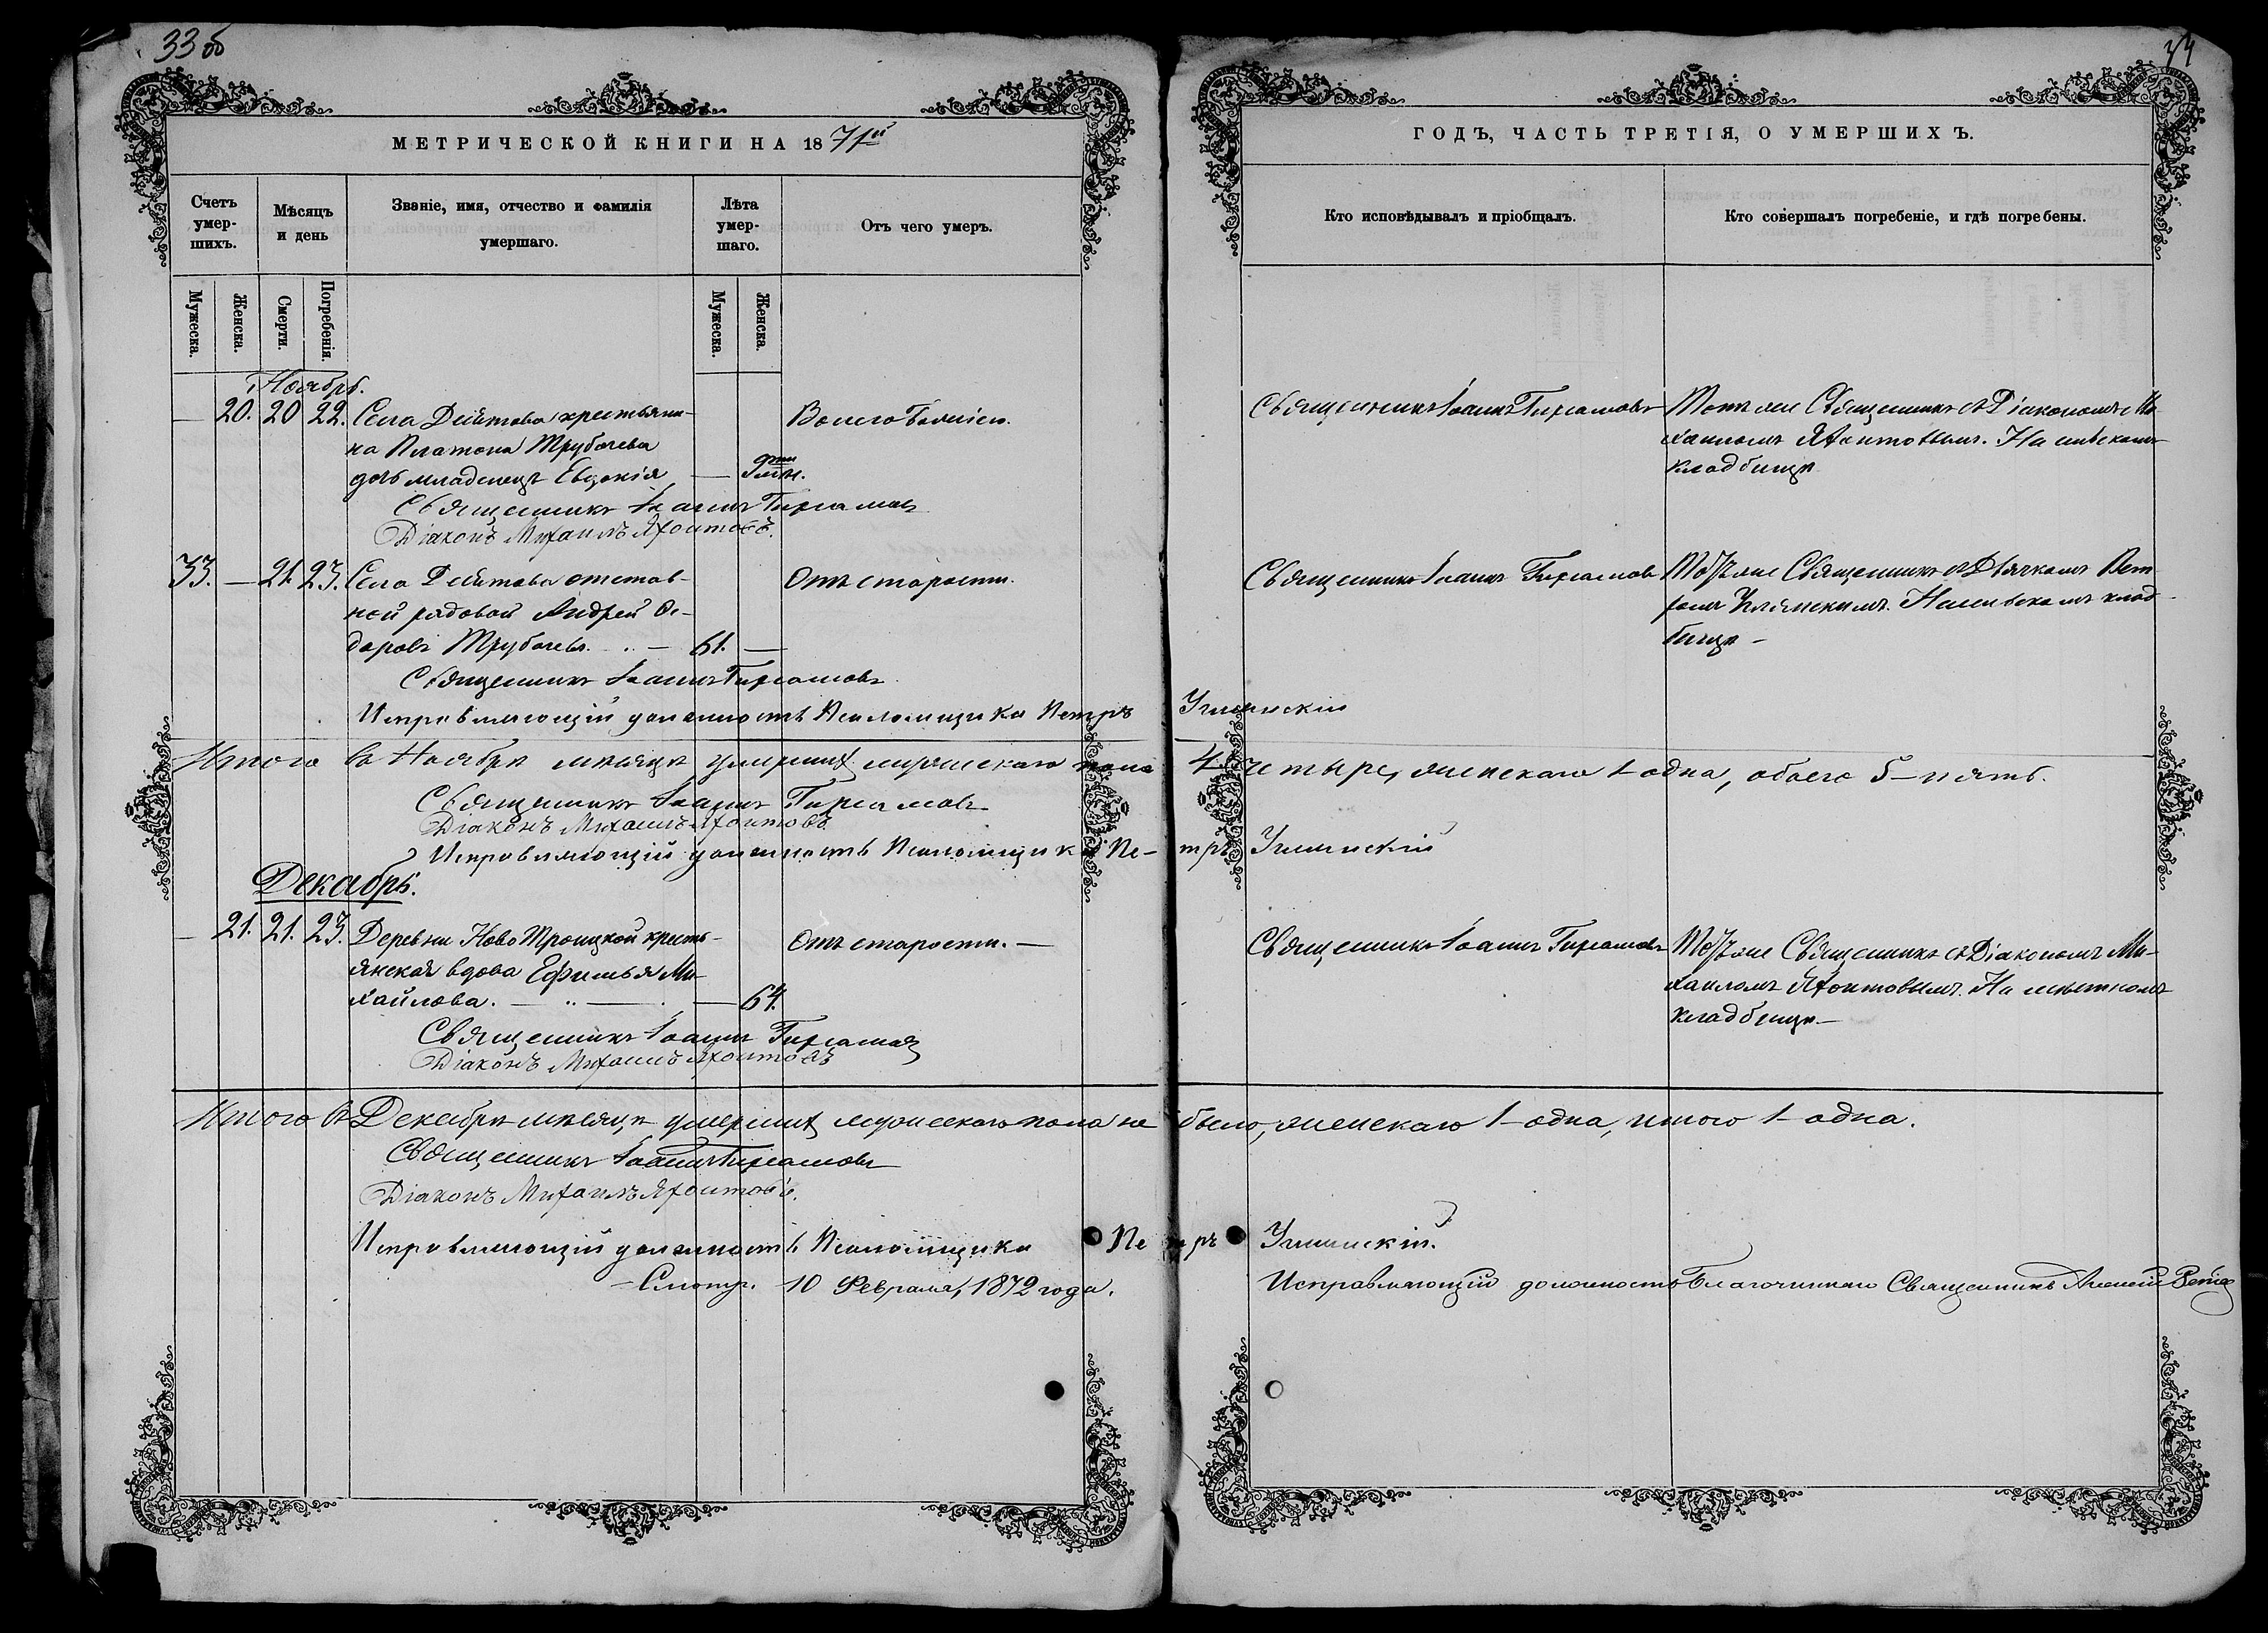 33 об
34
МЕТРИЧЕСКОЙ КНИГИ НА 1871й
ГОДЪ, ЧАСТЬ ТРЕТІЯ, О УМЕРШИХЪ.
Счетъ умер-шихъ.
Мѣсяцъ и день
Званіе, имя, отчество и фамилія умершаго.
Лѣта умер-шаго.
Отъ чего умеръ.
Кто исповѣдывалъ и пріобщалъ.
Кто совершалъ погребеніе, и гдѣ погребены.
Мужеска.
Женска.
Смерти.
Погребенія.
Мужеска.
Женска.
Ноябрь.
— 20. 20 22. Села крестьяни-
на Платона Трубачева
дочь младенецъ Евдокія —
Священникъ Іоаннъ
Діаконъ Михаилъ Яхонтовъ.
Священникъ Іоаннъ
Тотъ же Священникъ съ Діакономъ Ми-
хаиломъ Яхонтовымъ. На
кладбищѣ
33. — 21. 23. Села отстав-
ной рядовой Андрей Ѳе-
доровъ Трубачевъ. — 61. —
Отъ старости.
Священникъ Іоаннъ
Исправляющій должность Псаломщика Петръ
Священникъ Іоаннъ
Тотъ же Священникъ съ Дьячкомъ Пет-
ромъ клад-
бищѣ —
Итого въ Ноябрѣ мѣсяцѣ умершихъ мужескаго пола 4 четыре, женскаго 1 – одна, обоего 5 – пять.
Священникъ Іоаннъ
Діаконъ Михаилъ Яхонтовъ
Исправляющій должность Псаломщика Пе-тръ
Декабрь.
— 21. 21. 23. Деревни Ново Троицкой кресть-
янская вдова Ефимья Ми-
хайлова. — — 64.
Отъ старости. —
Священникъ Іоаннъ
Діаконъ Михаилъ Яхонтовъ
Священникъ Іоаннъ
Тотъ же Священникъ съ Діакономъ Ми-
хаиломъ Яхонтовымъ. На мѣстномъ
кладбищѣ —
Итого въ Декабрѣ мѣсяцѣ умершихъ мужескаго пола не было, женскаго 1 – одна, итого 1 – одна.
Священникъ Іоаннъ
Діаконъ Михаилъ Яхонтовъ.
Исправляющій должность Псаломщика Петръ
10 Февраля, 1872 года.
Исправляющій должность Благочиннаго Священникъ